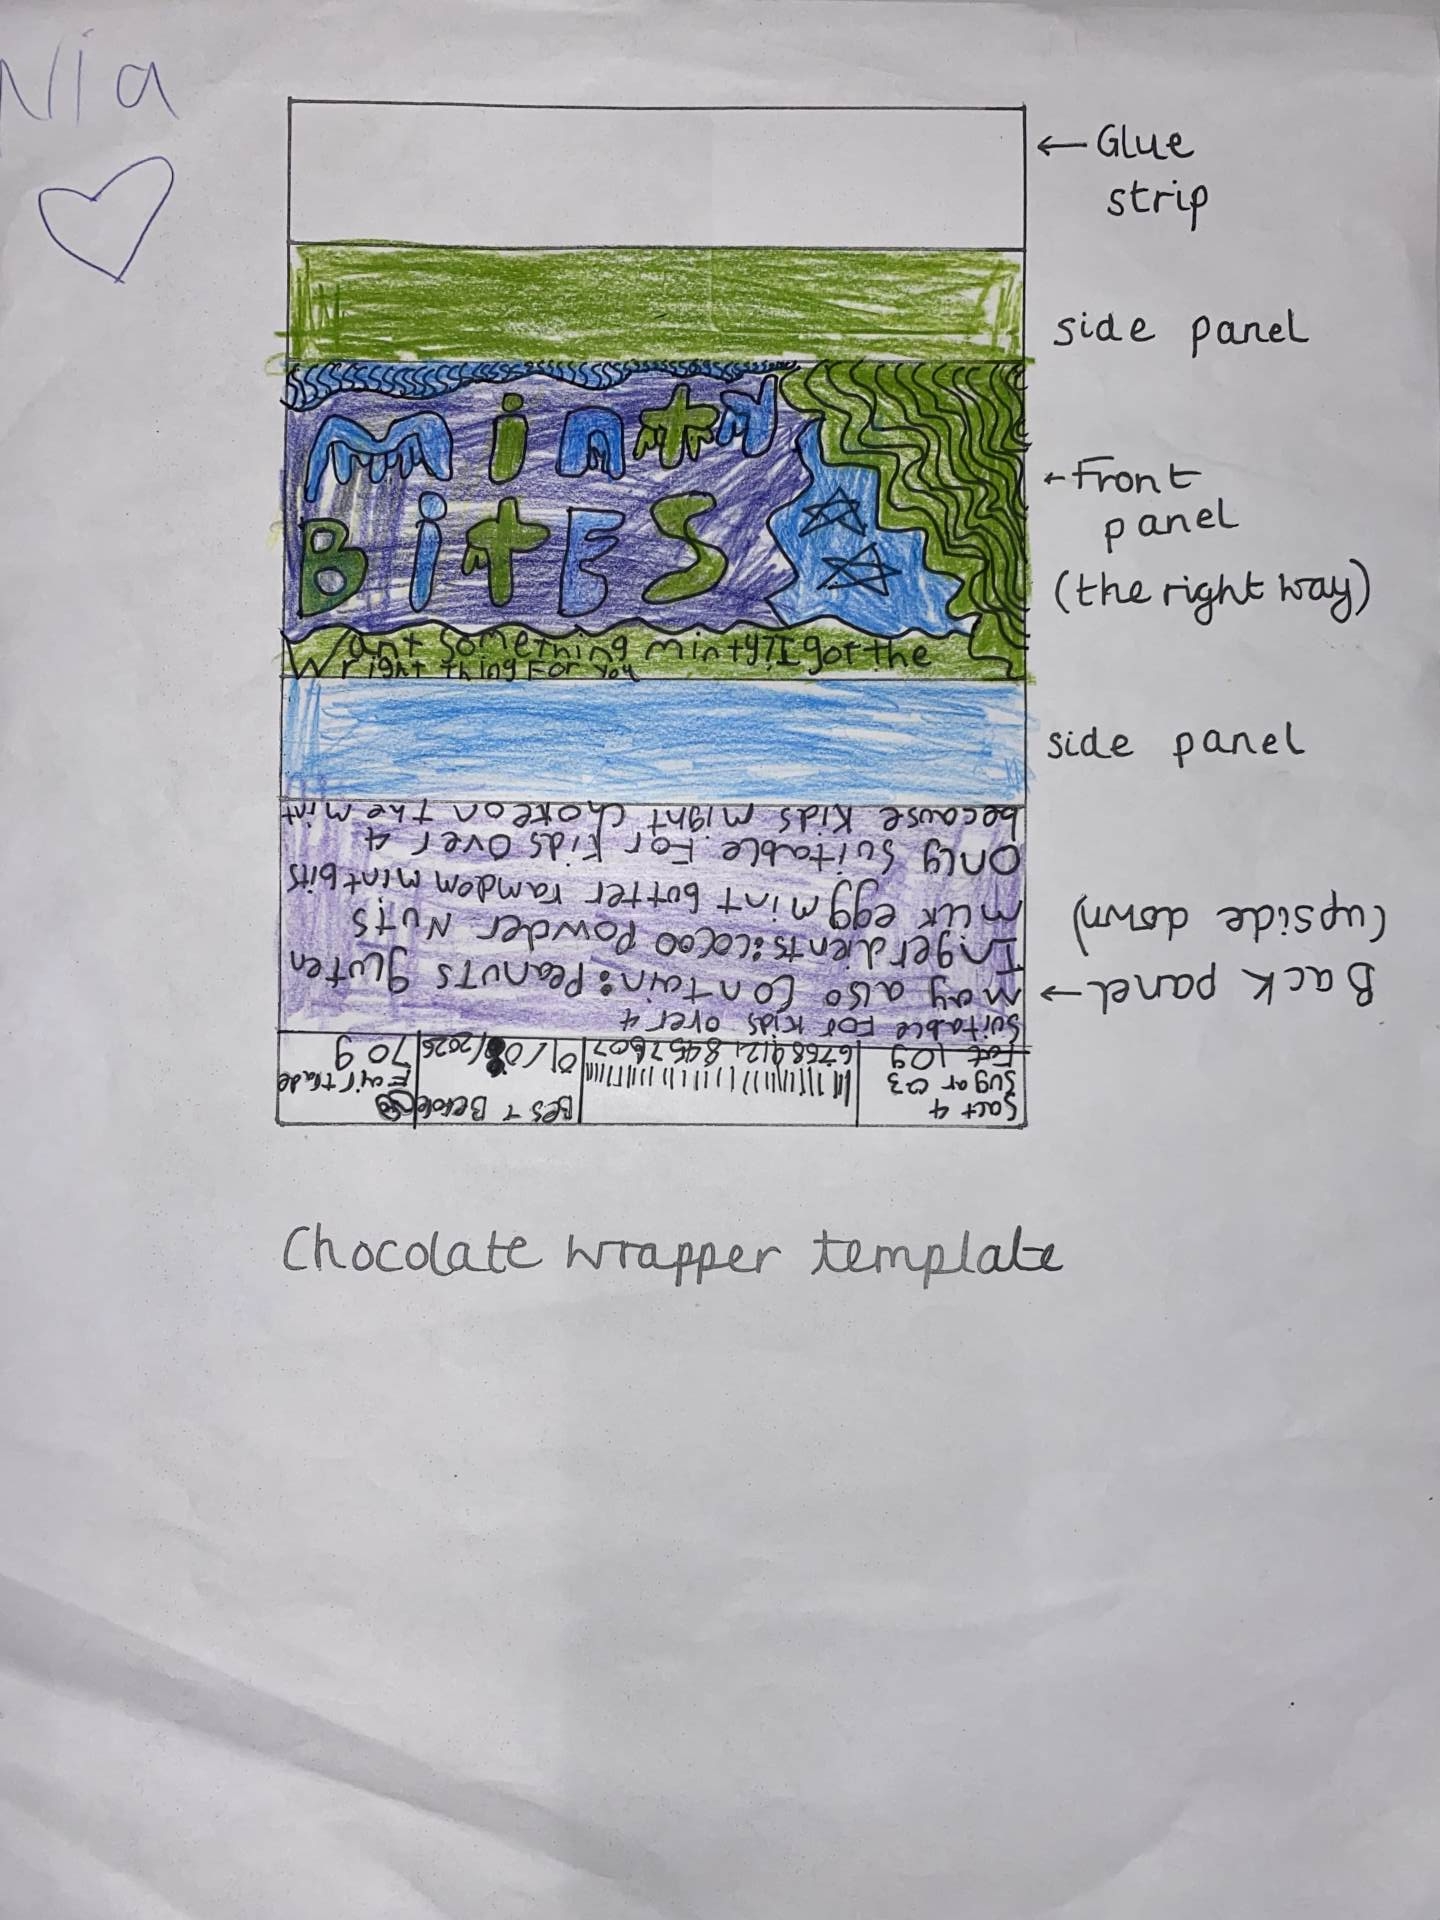 Nia
Glue
strip
side panel
Minty
BitES
Front
panel
(the right way)
Want something minty? I got the
right thing For you
side panel
Back panel
(upside down)
Salt 4
Sugar 03
Fat 10g
Best Before
Fairtrade
70g
Suitable For kids over 4
may also Contain: Peanuts gluten
Ingerdients: cocoo Powder Nuts
milk egg mint butter ramdem mint bits
Only Suitable For kids over 4
because kids might choke on the mint
Chocolate wrapper template